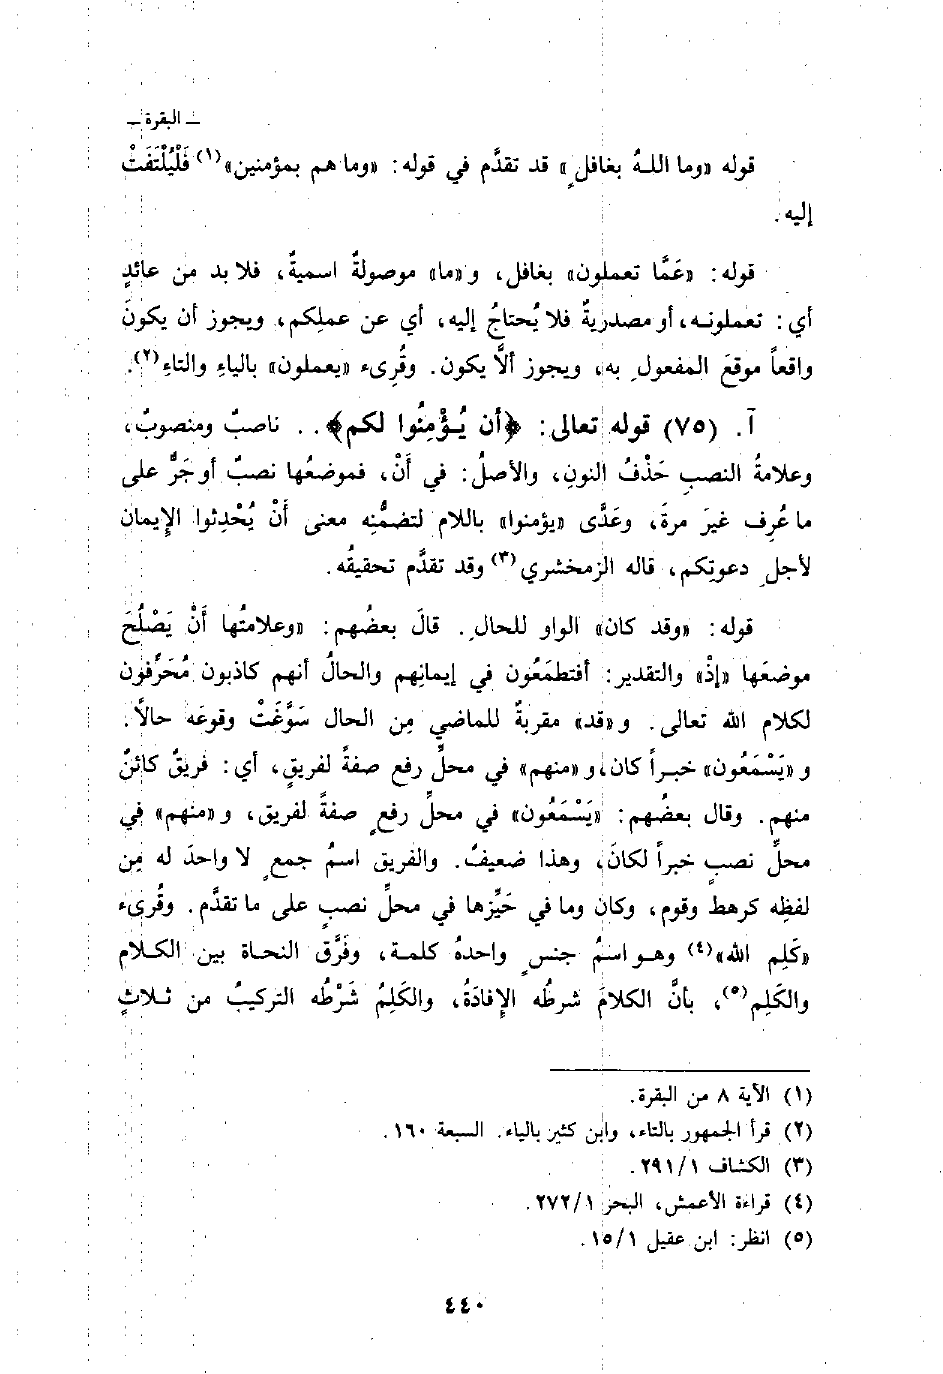 ــ البقرة ــ
قوله «وما اللـهُ بغافلٍ» قد تقدَّم في قوله: «وما هم بمؤمنين»(١) فَلْيُلْتَفَتْ
إليه.
قوله: «عَمَّا تعملون» بغافل، و«ما» موصولةٌ اسميةٌ، فلا بد من عائدٍ
أي: تعملونـه، أو مصدريةٌ فلا يُحتاجُ إليه، أي عن عملِكم، ويجوز أن يكونَ
واقعاً موقعَ المفعولِ به، ويجوز ألَّا يكون. وقُرِىء «يعملون» بالياءِ والتاءِ(٢).
آ. (٧٥) قوله تعالى: ﴿أن يُـؤْمِنُوا لكم﴾.. ناصبٌ ومنصوبٌ،
وعلامةُ النصبِ حَذْفُ النونِ، والأصلُ: في أَنْ، فموضعُها نصبٌ أو جَرٌّ على
ما عُرِف غيرَ مرةَ، وعَدَّى «يؤمنوا» باللام لتضمُّنِه معنى أَنْ يُحْدِثوا الإِيمان
لأجلِ دعوتِكم، قاله الزمخشري(٣) وقد تقدَّم تحقيقُه.
قوله: «وقد كان» الواو للحالِ. قالَ بعضُهم: «وعلامتُها أَنْ يَصْلُحَ
موضعَها «إذْ» والتقدير: أفتطمَعُون في إيمانِهم والحالُ أنهم كاذبون مُحَرِّفون
لكلام الله تعالى. و«قد» مقربةٌ للماضي مِن الحال سَوَّغَتْ وقوعَه حالاً.
و«يَسْمَعُون» خبـراً كان، و«منهم» في محلِّ رفع صفةً لفريقٍ، أي: فريقٌ كائنٌ
منهم. وقال بعضُهم: «يَسْمَعُون» في محلِّ رفعٍ صفةً لفريق، و«منهم» في
محلِّ نصبٍ خبراً لكانَ، وهذا ضعيفٌ. والفريق اسمُ جمعٍ لا واحدَ له مِن
لفظِه كرهط وقوم، وكان وما في حَيِّزها في محلِّ نصبٍ على ما تقدَّم. وقُرِىء
«كَلِم الله»(٤) وهـو اسمُ جنسٍ واحدهُ كلمـة، وفَرَّق النحـاة بين الكـلام
والكَلِم(٥)، بأنَّ الكلامَ شرطُه الإِفادَةُ، والكَلِمُ شَرْطُه التركيبُ من ثـلاثٍ
(١) الآية ٨ من البقرة.
(٢) قرأ الجمهور بالتاء، وابن كثير بالياء. السبعة ١٦٠.
(٣) الكشاف ٢٩١/١.
(٤) قراءة الأعمش، البحر ٢٧٢/١.
(٥) انظر: ابن عقيل ١٥/١.
٤٤٠